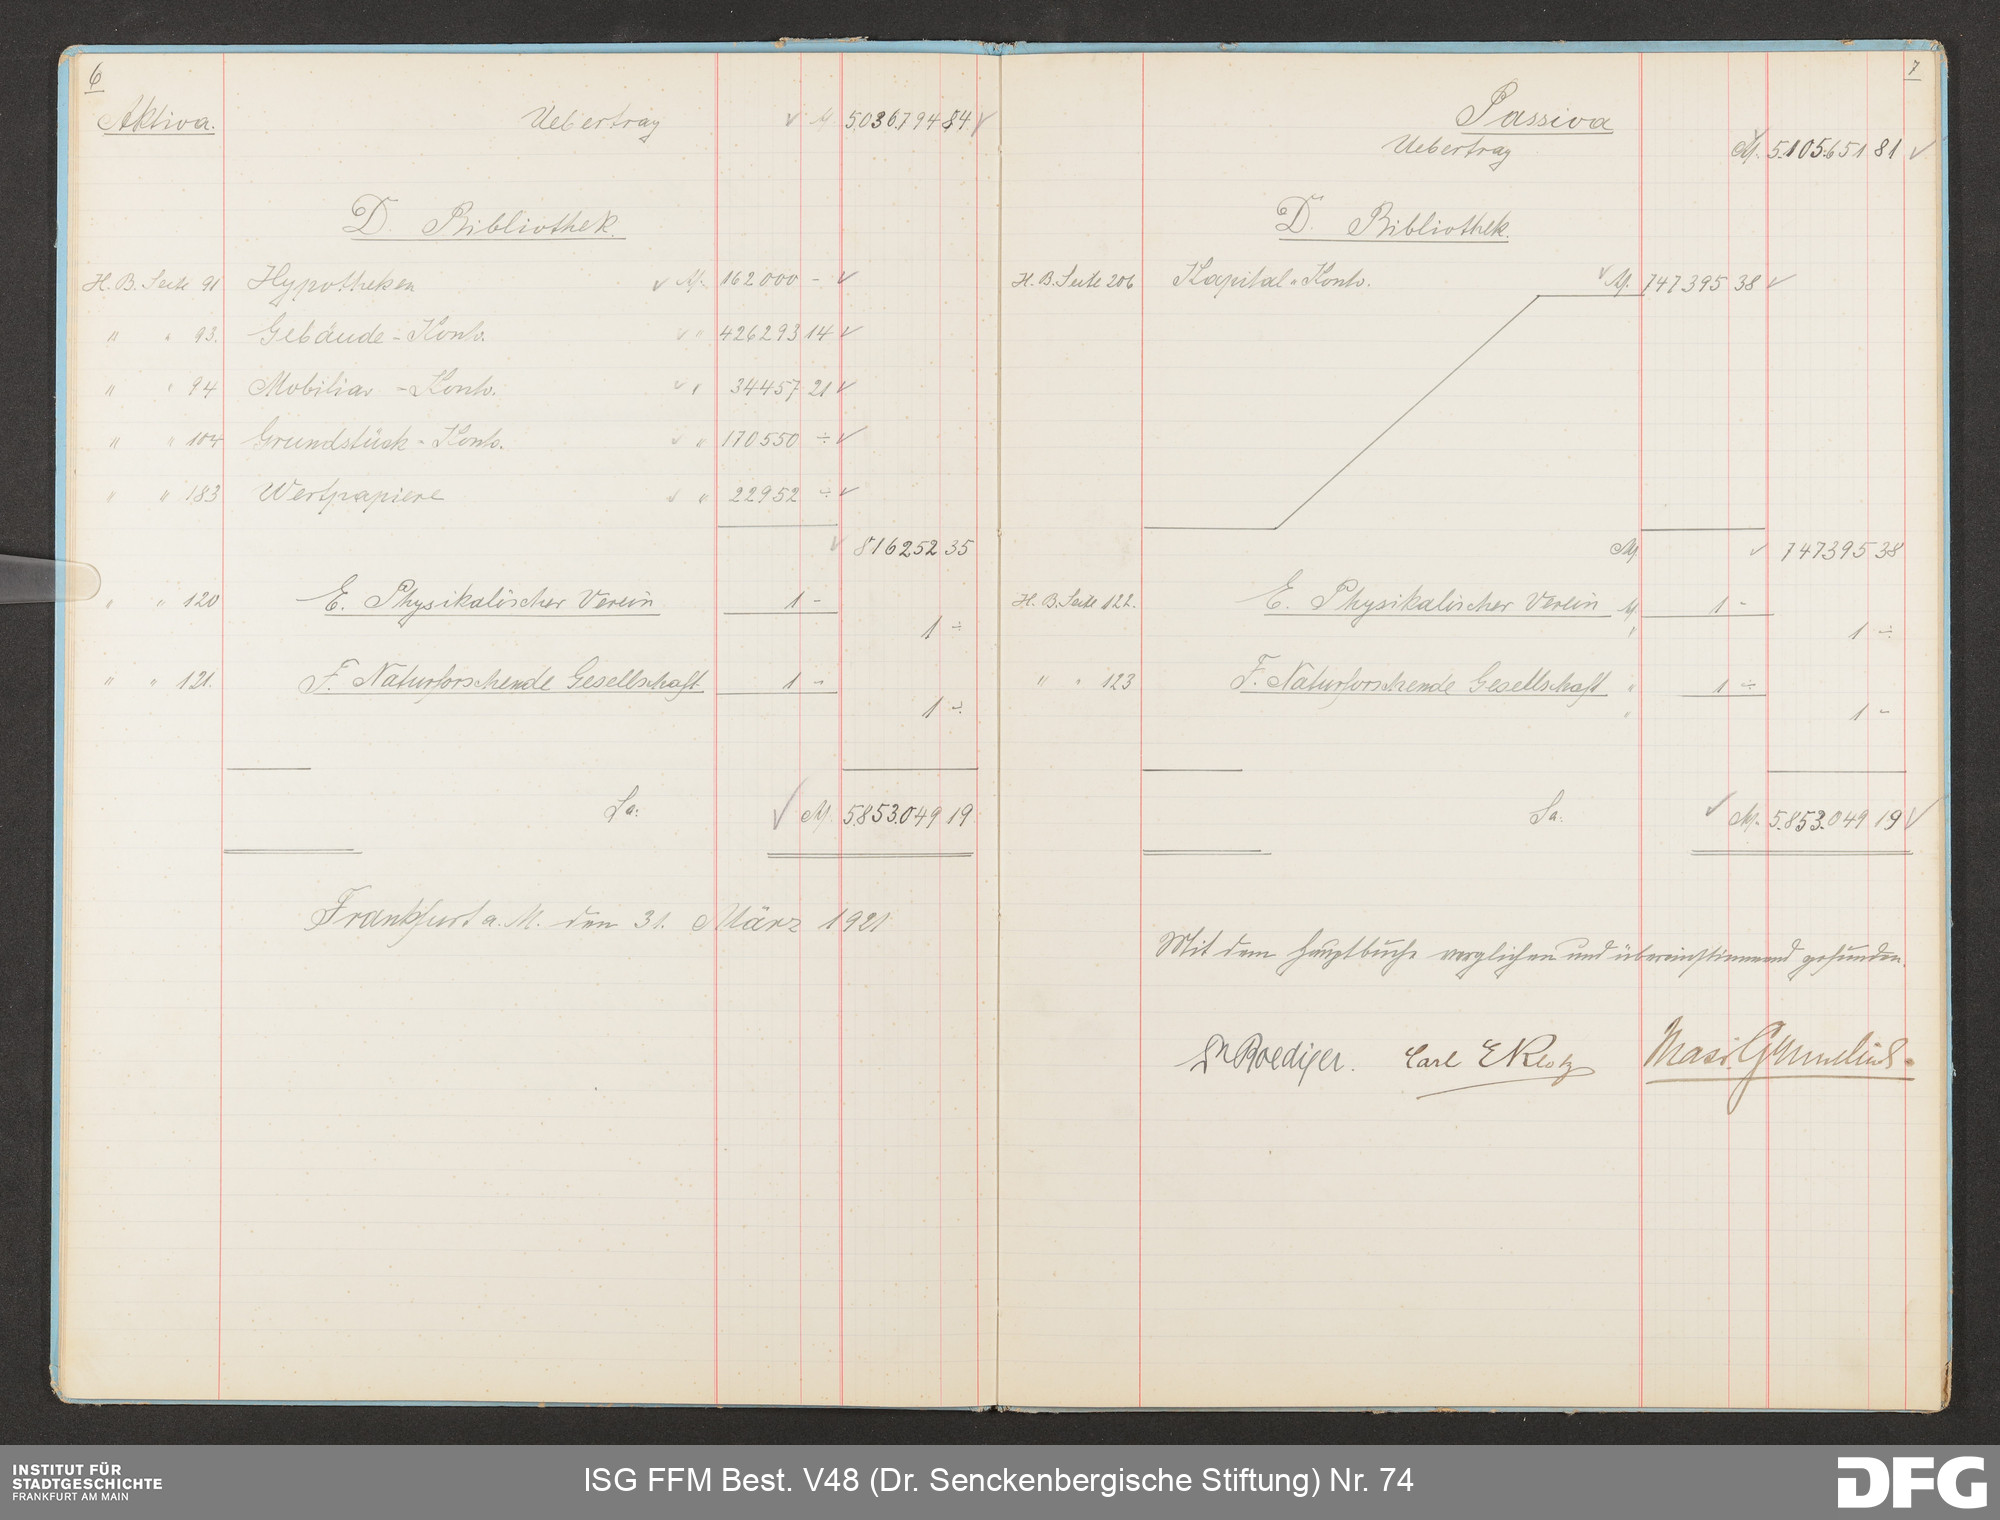 6
Aktiva.
Uebertrag M 5.036.794 84
D. Bibliothek.
H. B. Seite 91 Hypotheken M. 162000 -
" " 93. Gebäude-Konto. " 426293 14
" " 94 Mobiliar-Konto. " 34457 21
" " 104 Grundstück-Konto. " 170550 -
" " 183 Wertpapiere " 22952 -
816252 35
" " 120 E. Physikalischer Verein 1 -
1 -
" " 121. F. Naturforschende Gesellschaft 1 -
1 -
Sa: M. 5.853.049 19
Frankfurt a. M. den 31. März 1921
7
Passiva
Uebertrag M. 5.105.651 81
D. Bibliothek.
H. B. Seite 206 Kapital-Konto. M. 747395 38
M. 747395 38
H. B. Seite 122. E. Physikalischer Verein M. 1 -
" 1 -
" " 123 F. Naturforschende Gesellschaft " 1 -
" 1 -
Sa: M. 5.853.049 19
Mit dem Hauptbuche verglichen und übereinstimmend gefunden.
Dr Roediger. Carl E Klotz
INSTITUT FÜR
STADTGESCHICHTE
FRANKFURT AM MAIN
ISG FFM Best. V48 (Dr. Senckenbergische Stiftung) Nr. 74
DFG